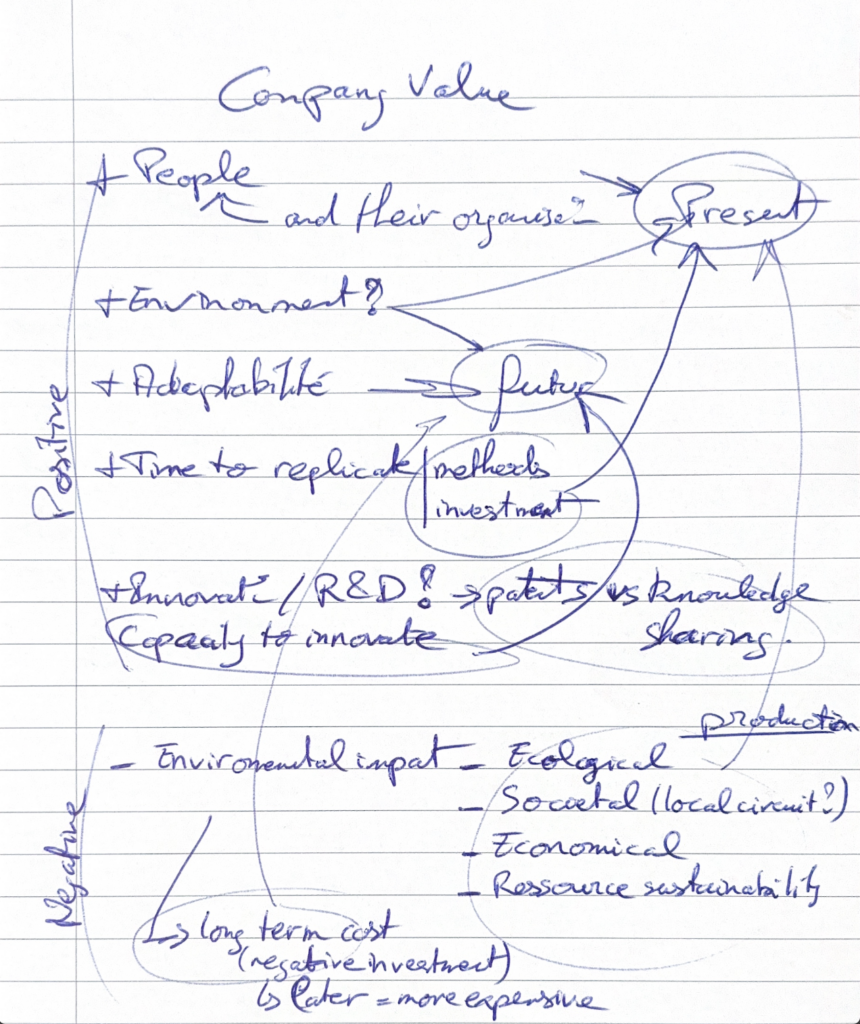 Company Value
+ People
and their organisa° Present
+ Environment?
+ Adaptabilité future
+ Time to replicate | methods
investment
Positive
+ Innovat° / R&D! → patents vs knowledge
Capacity to innovate sharing.
production
- Enviromental impat - Ecological
- Societal (local circuit?)
- Economical
- Ressource sustainability
Negative
↳ long term cost
(negative investment)
↳ Later = more expensive